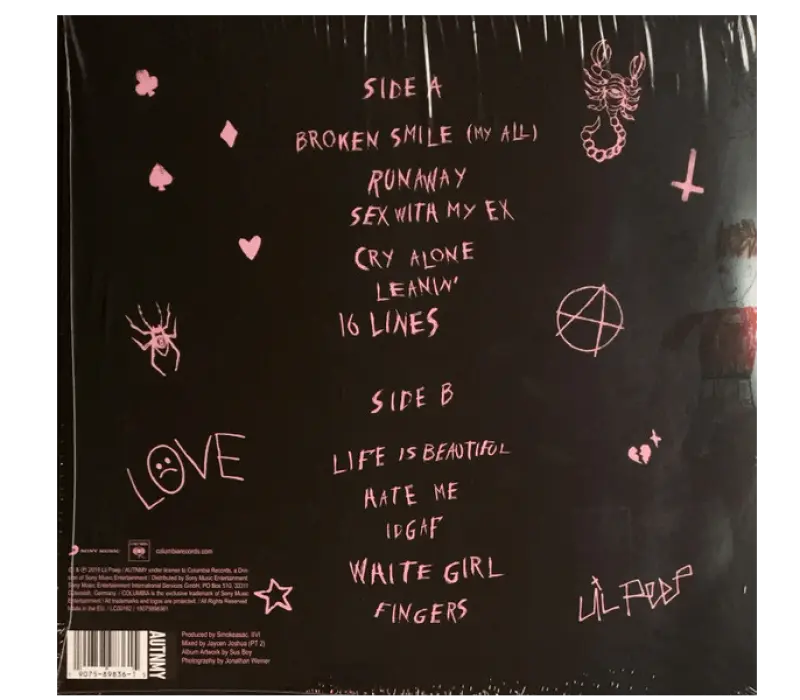 SIDE A
BROKEN SMILE (MY ALL)
RUNAWAY
SEX WITH MY EX
CRY ALONE
LEANIN'
16 LINES
SIDE B
LIFE IS BEAUTIFUL
HATE ME
IDGAF
WHITE GIRL
FINGERS
LOVE
LiL PEEP
SONY MUSIC
columbiarecords.com
& ℗ 2019 Lil Peep / AUTNMY under license to Columbia Records, a Div-
of Sony Music Entertainment / Distributed by Sony Music Entertainment
Sony Music Entertainment International Services GmbH, PO Box 510, 33311
Germany / COLUMBIA is the exclusive trademark of Sony Music
Entertainment / All trademarks and logos are protected / All Rights Reserved
Made in the EU
AUTNMY
9075-89836-1 5
Produced by Smokeasac, IIVI
Mixed by Jaycen Joshua (PT 2)
Album Artwork by Sus Boy
Photography by Jonathan Weiner